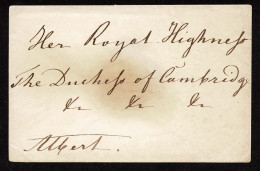 Her Royal Highness
The Duchess of Cambridge
&c &c &c
Albert.